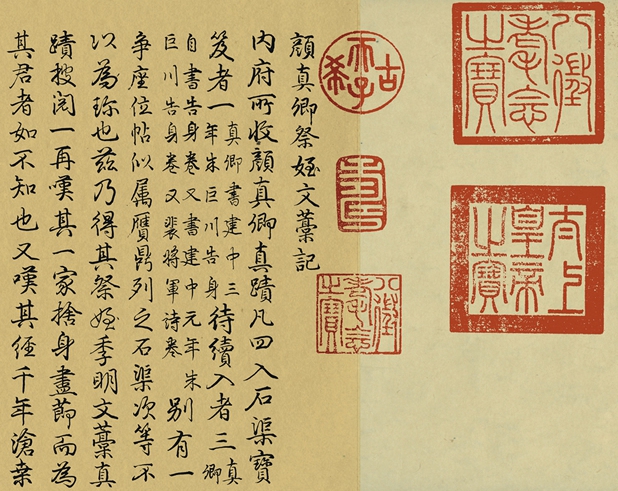 八徵耄念之寶
太上皇帝之寶
古希天子
壽
八徵耄念之寶
顏真卿祭姪文藁記
内府所收顏真卿真蹟凡四入石渠寶
笈者一真卿書建中三年朱巨川告身待續入者三真卿
自書告身卷又書建中元年朱巨川告身卷又裴將軍詩卷別有一
爭座位帖似属贋鼎列之石渠次等不
以為珎也兹乃得其祭姪季明文藁真
蹟披閱一再嘆其一家捨身盡節而為
其君者如不知也又嘆其經千年滄桑